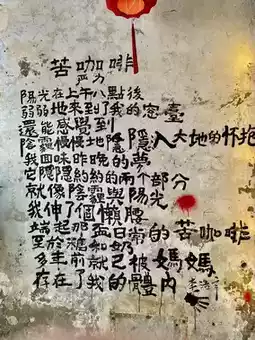 苦咖啡
严力
陽光在上午八點後
弱弱地來到了我的窗臺
還能感覺到
隱入大地的怀抱
我回味昨晚的夢
它隱隱約約的兩個部分
就像陰霾與陽光
我伸了個懶腰
端起那盃日常的苦咖啡
至於糖和奶
多年前就已被媽媽
存在了我的體內